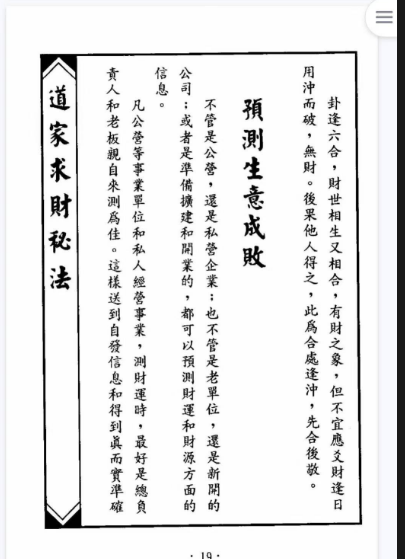 卦逢六合，財世相生又相合，有財之象，但不宜應爻財逢日
用沖而破，無財。後果他人得之，此爲合處逢沖，先合後敬。
預測生意成敗
不管是公營，還是私營企業；也不管是老單位，還是新開的
公司；或者是準備擴建和開業的，都可以預測財運和財源方面的
信息。
凡公營等事業單位和私人經營事業，測財運時，最好是總負
責人和老板親自來測爲佳。這樣送到自發信息和得到眞而實準確
道家求財秘法
·19·